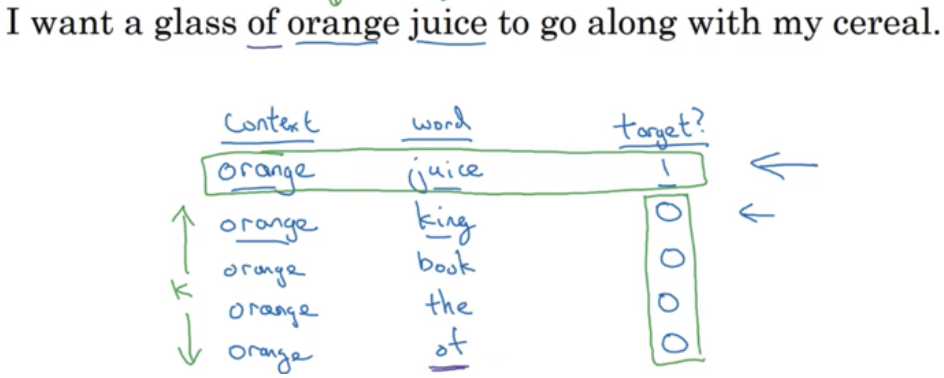 I want a glass of orange juice to go along with my cereal.
Context word target?
orange juice 1
orange king 0
orange book 0
K
orange the 0
orange of 0